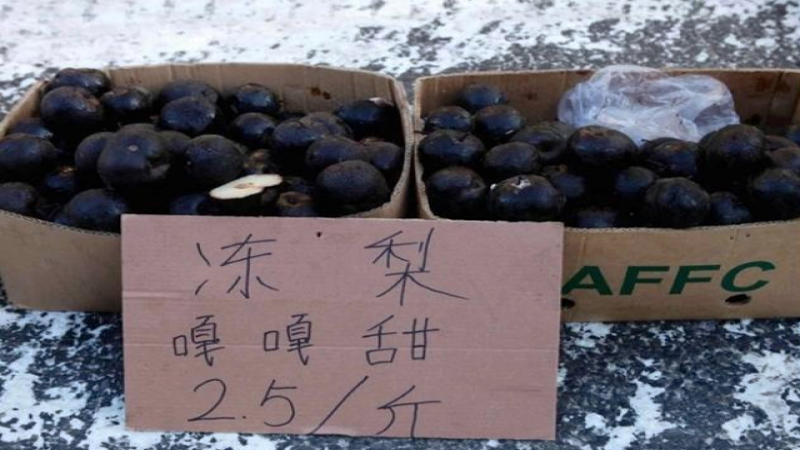 冻梨
嘎嘎甜
2.5/斤
AFFC